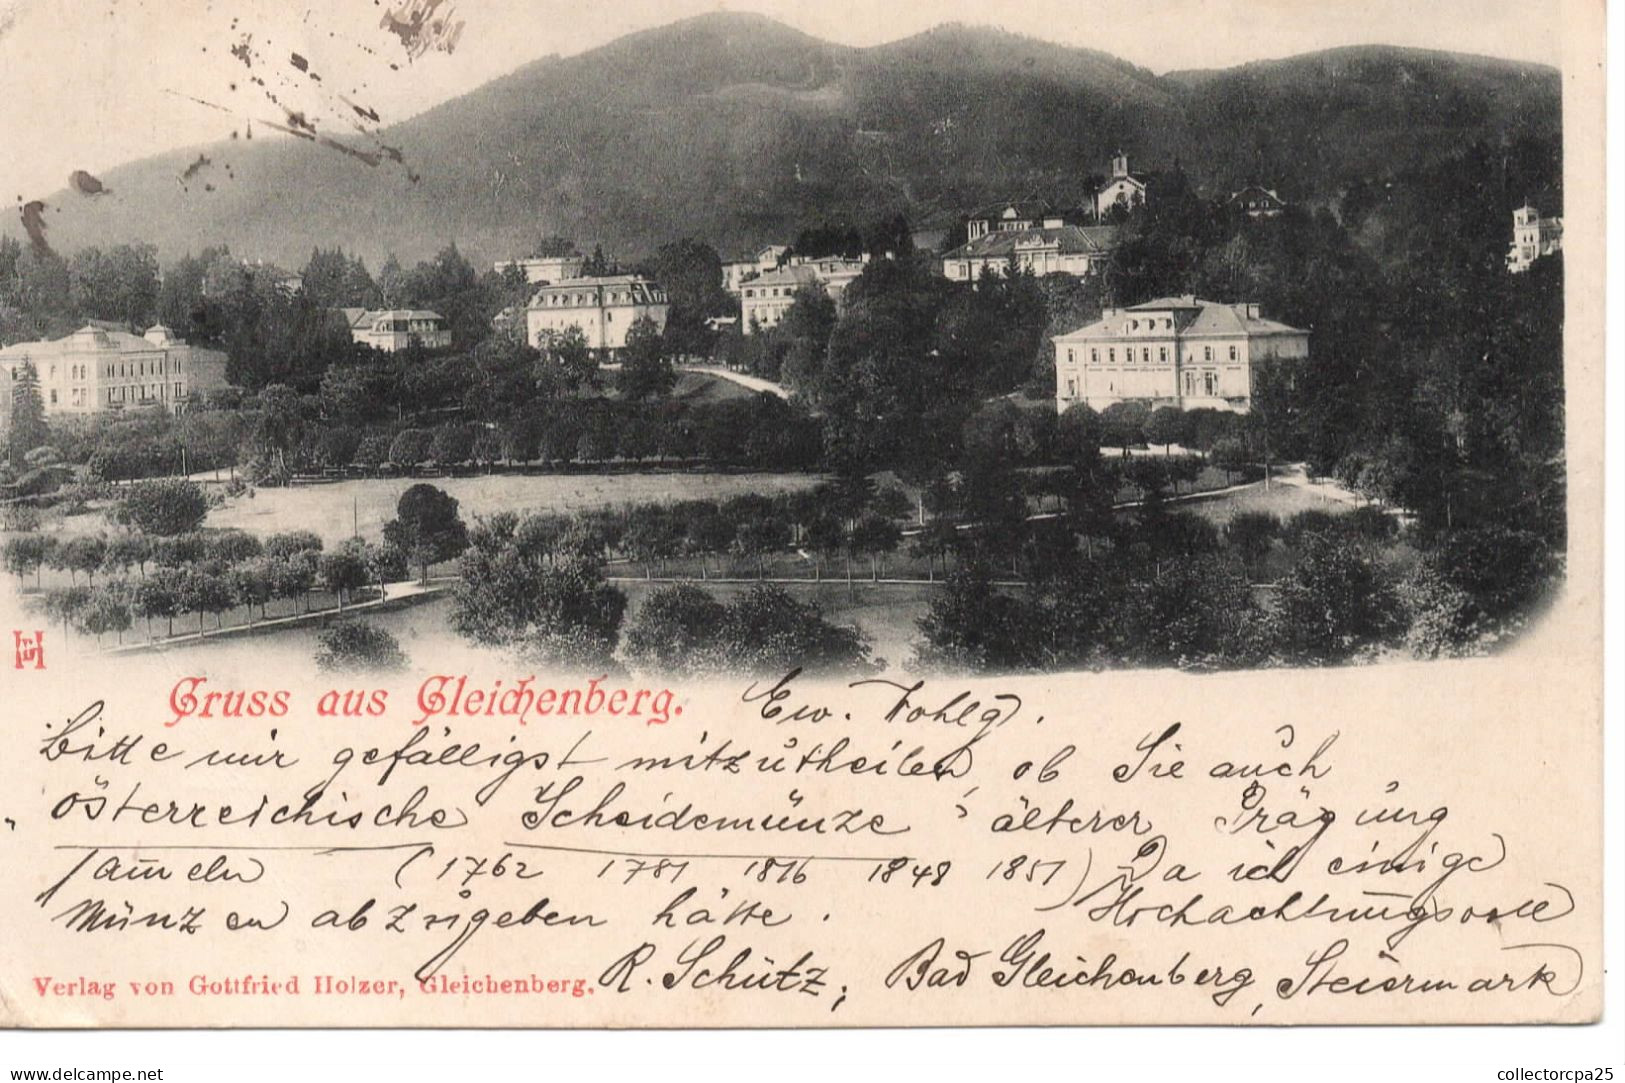 Gruss aus Gleichenberg.
Ew. Wohlg.
Bitte mir gefälligst mitzutheilen, ob Sie auch
österreichische Scheidemünze älterer Prägung
sammeln (1762 1781 1816 1848 1851) Da ich einige
Münzen abzugeben hätte. Hochachtungsvoll
R. Schütz, Bad Gleichenberg, Steiermark
Verlag von Gottfried Holzer, Gleichenberg.
www.delcampe.net
collectorcpa25